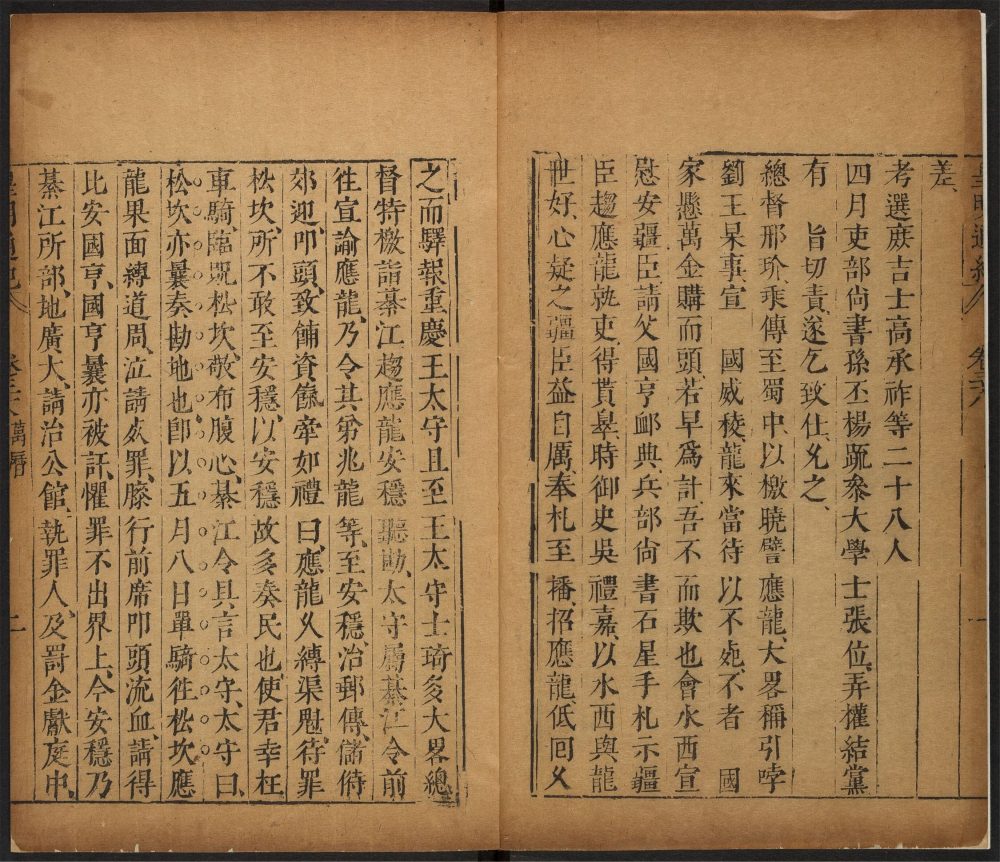 差、
考選庻吉士高承祚等二十八人
四月吏部尚書孫丕楊䟽叅大學士張位、弄權結黨
有　旨切責、遂乞致仕、久之、
總督邢玠、乘傳至蜀中、以檄曉譬應龍、大畧稱引哱
劉王杲事、宣　國威稜、龍來當待以不𣦸、不者　國
家懸萬金購而頭、若早爲計、吾不而欺也會水西宣
慰安疆臣、請父國亨䘏典、兵部尚書石星手札示疆
臣、趨應龍就吏、得貰辠、時御史吳禮嘉、以水西與龍
世好、心疑之、疆臣益自厲、奉札至播、招應龍、低回久
之而驛報重慶王太守且至王太守士琦多大畧總
督特檄詣綦江趨應龍安穩聽勘、太守屬綦江令前
徃宣諭應龍乃令其弟兆龍等、至安穩、冶郵傳、儲偫
郊迎、叩頭、致餔資餼牽如禮曰、應龍久縛渠魁、待罪
松坎、所不敢至安穩、以安穩故多奏民也、使君幸枉
車騎、臨況松坎、敬布腹心、綦江令具言太守、太守曰、
松坎亦曩奏勘地也、卽以五月八日單騎徃松坎應
龍果面縛道周、泣請𣦸罪、膝行前席叩頭流血、請得
比安國亨、國亨曩亦被訐、懼罪不出界上、今安穩乃
綦江所部、地廣大、請治公館、執罪人、及罰金獻庭中、
卷三十八　萬曆
一
二